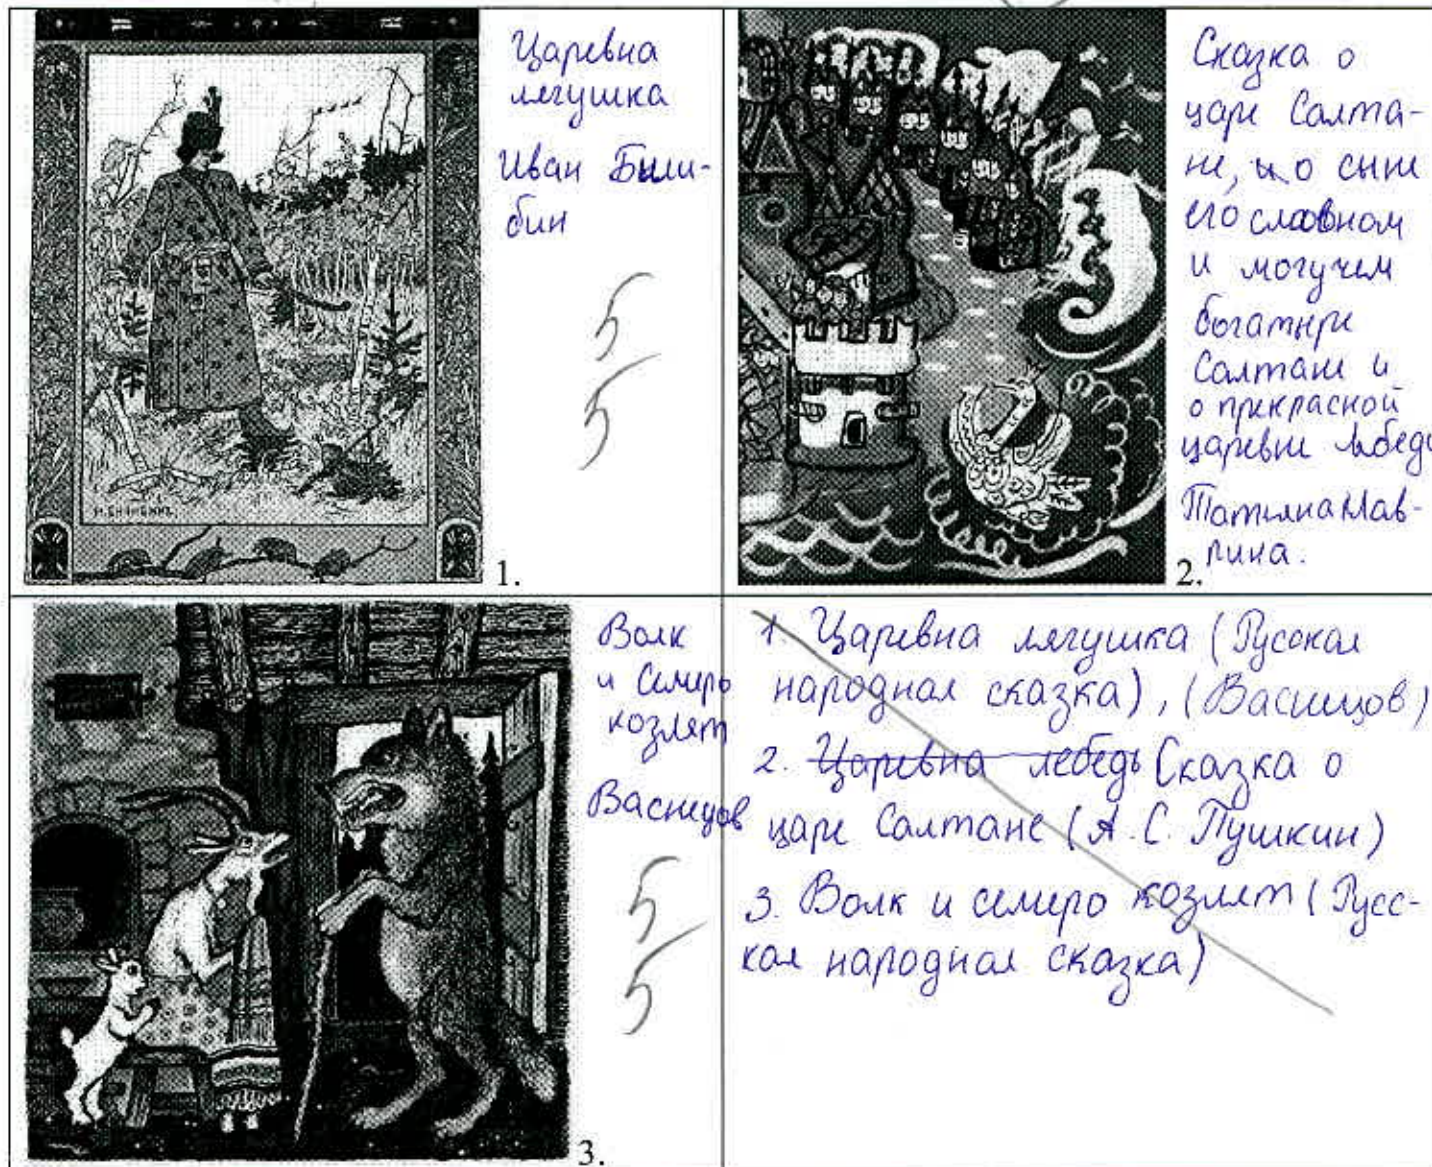 Царевна
лягушка
Иван Били-
бин
5
5
И. БИЛИБИНЪ.
1.
Сказка о
царе Салта-
не, и о сыне
его славном
и могучем
богатыре
Салтане и
о прекрасной
царевне лебедь
Татьяна Мав-
рина.
2.
Волк
и Семеро
козлят
Васнецов
5
5
3.
1. Царевна лягушка (Русская
народная сказка), (Васнецов)
2. Царевна лебедь Сказка о
царе Салтане (А. С. Пушкин)
3. Волк и семеро козлят (Русс-
кая народная сказка)